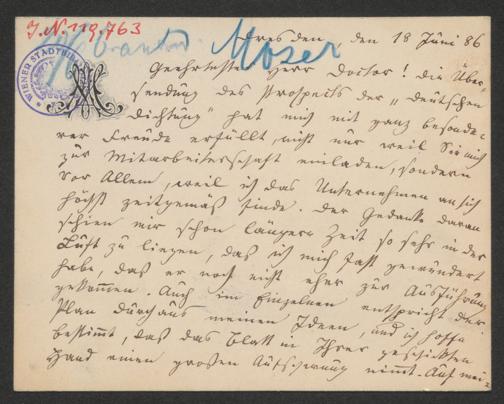 I.N. 119.763
Beantw.
Moser
WIENER STADTBIBL
Dresden, den 18 Juni 86
Geehrtester Herr Doctor! Die Über-
sendung des Prospects der „Deutschen
Dichtung" hat mich mit ganz besonde-
rer Freude erfüllt, nicht nur weil Sie mich
zur Mitarbeiterschaft einladen, sondern
vor Allem, weil ich das Unternehmen an sich
höchst zeitgemäß finde. Der Gedanke daran
schien mir schon längere Zeit so sehr in der
Luft zu liegen, daß ich mich fast gewundert
habe, daß er noch nicht eher zur Ausführung
gekommen. Auch im Einzelnen entspricht der
Plan durchaus meinen Ideen, und ich hoffe
bestimmt, daß das Blatt in Ihrer geschickten
Hand einen großen Aufschwung nimmt. Auf mei-